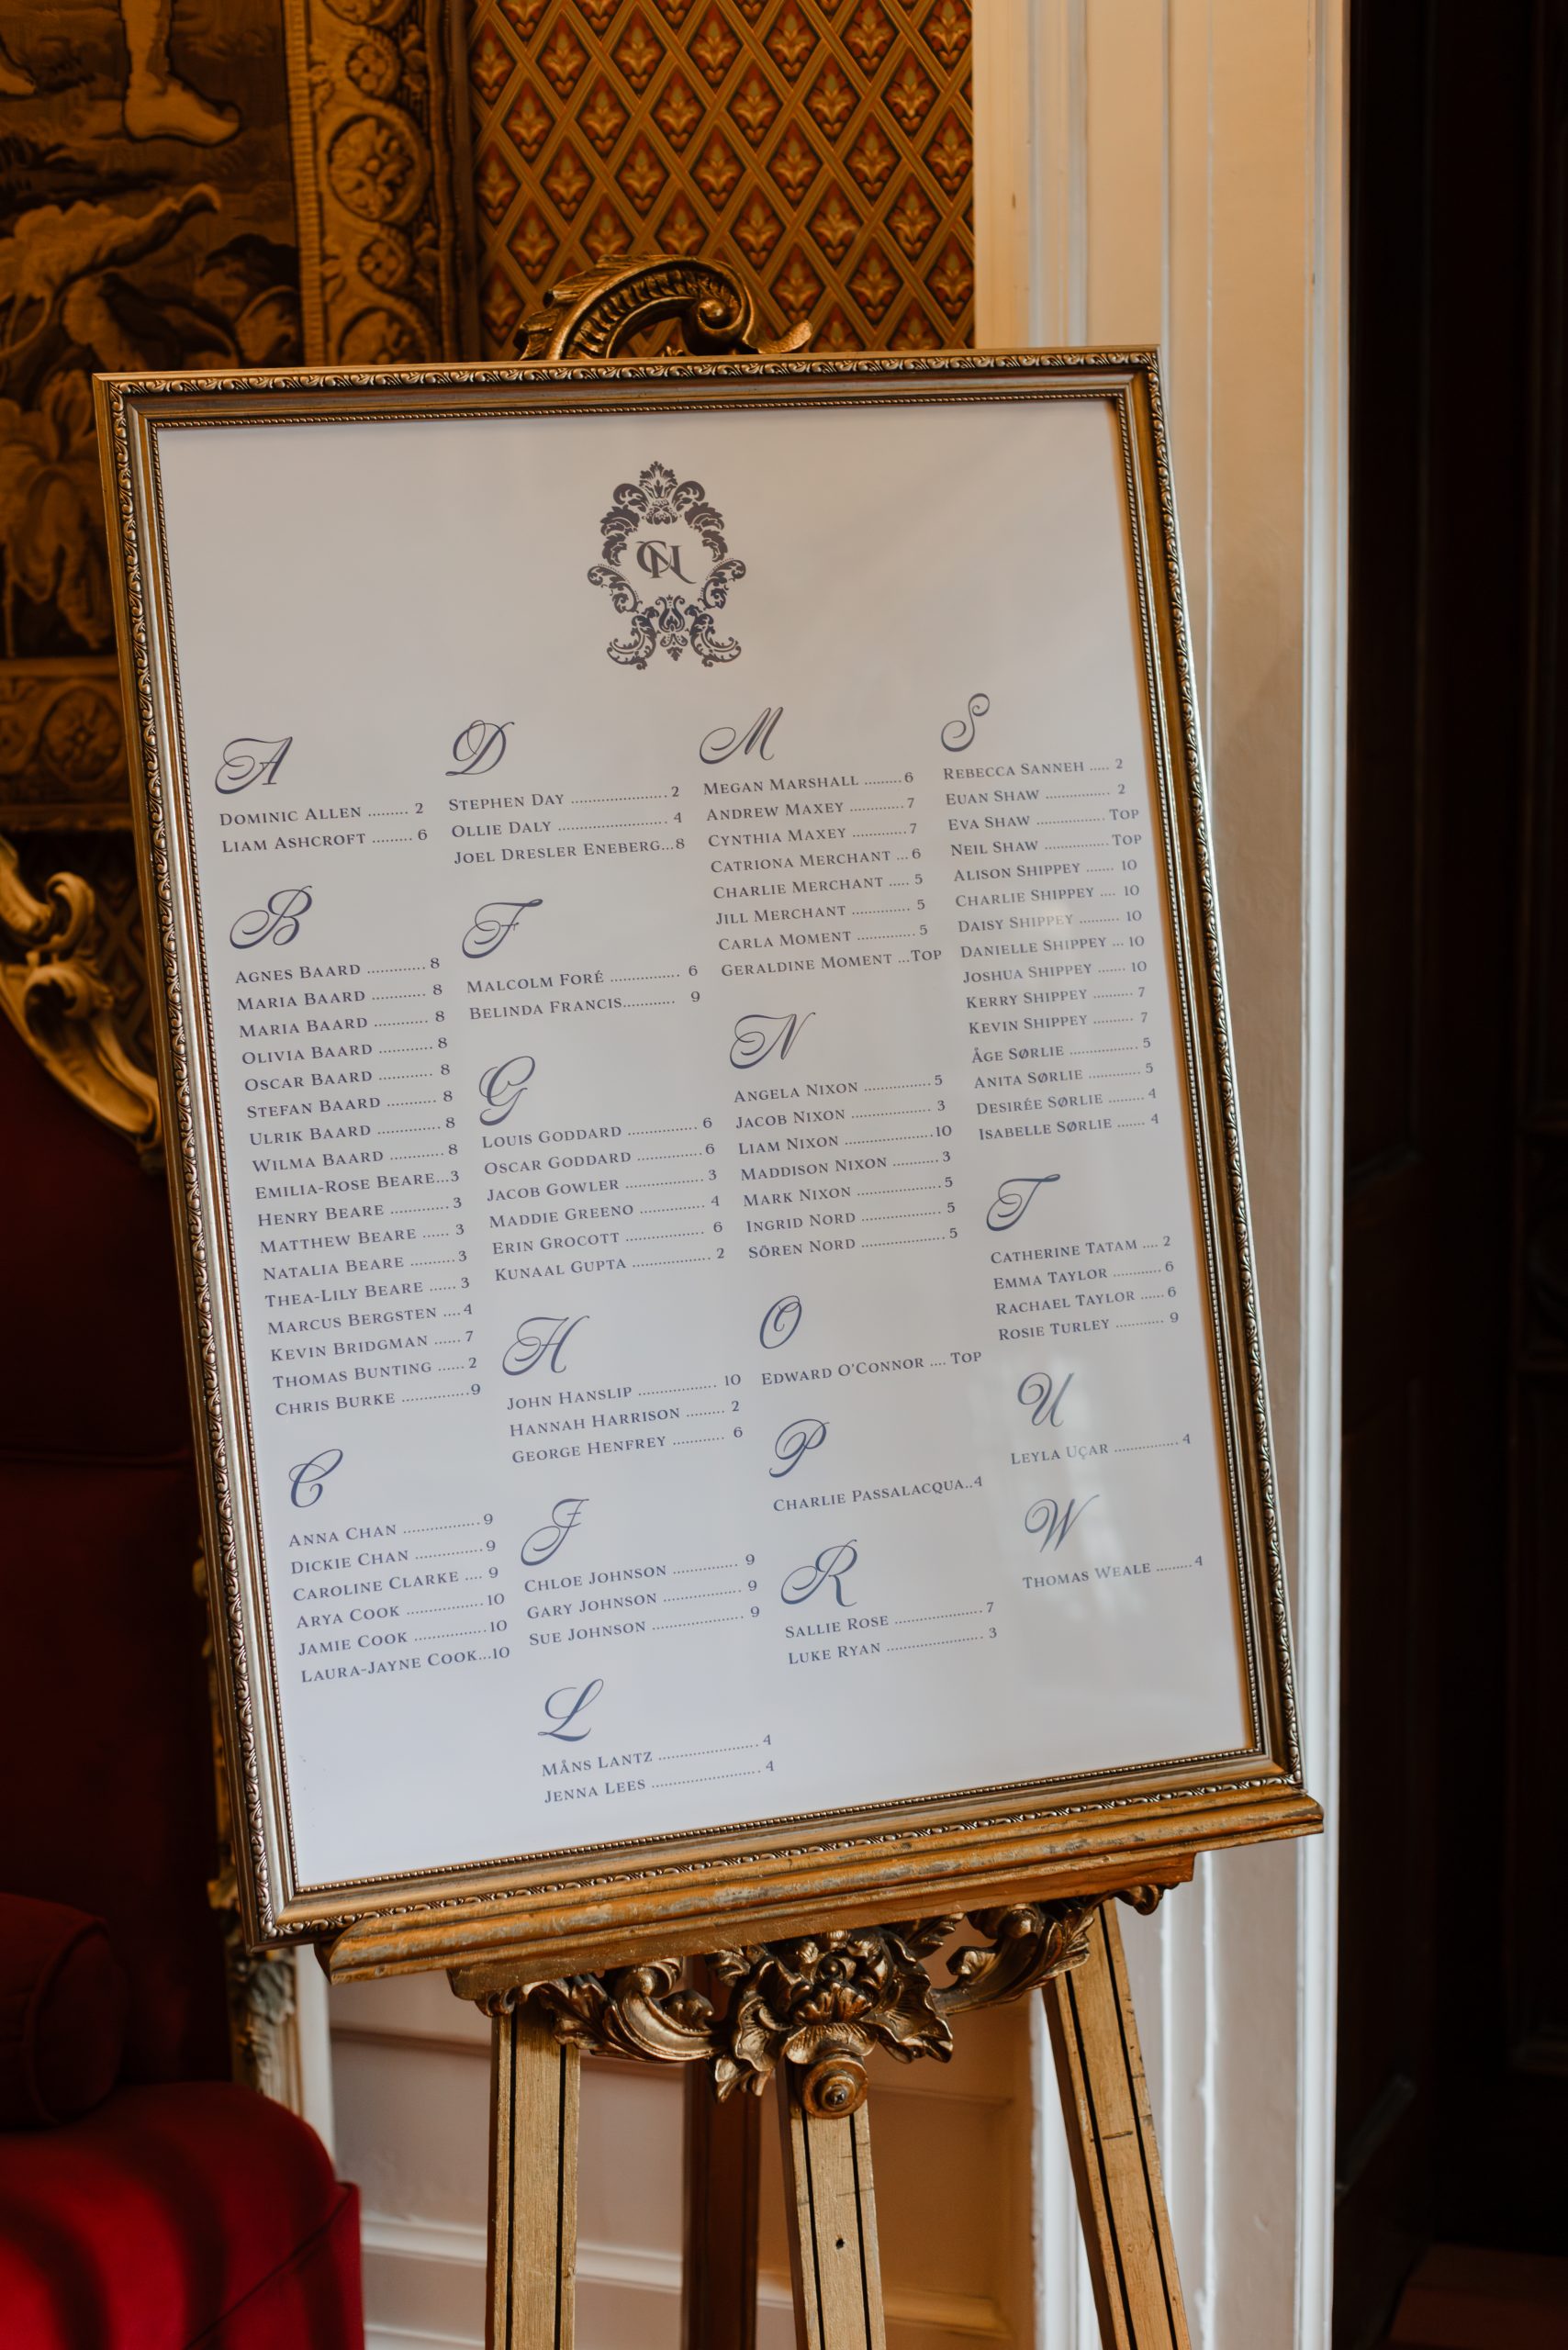 CN
A
DOMINIC ALLEN ......... 2
LIAM ASHCROFT ......... 6
B
AGNES BAARD ............ 8
MARIA BAARD ............ 8
MARIA BAARD ............ 8
OLIVIA BAARD ............ 8
OSCAR BAARD ............ 8
STEFAN BAARD ........... 8
ULRIK BAARD ............ 8
WILMA BAARD ........... 8
EMILIA-ROSE BEARE...3
HENRY BEARE ............ 3
MATTHEW BEARE ...... 3
NATALIA BEARE .......... 3
THEA-LILY BEARE ....... 3
MARCUS BERGSTEN .... 4
KEVIN BRIDGMAN ...... 7
THOMAS BUNTING ...... 2
CHRIS BURKE ............... 9
C
ANNA CHAN ................. 9
DICKIE CHAN ............... 9
CAROLINE CLARKE .... 9
ARYA COOK ................. 10
JAMIE COOK ................ 10
LAURA-JAYNE COOK...10
D
STEPHEN DAY ...................... 2
OLLIE DALY ......................... 4
JOEL DRESLER ENEBERG...8
F
MALCOLM FORÉ ................ 6
BELINDA FRANCIS............ 9
G
LOUIS GODDARD ................ 6
OSCAR GODDARD ............... 6
JACOB GOWLER .................. 3
MADDIE GREENO ............... 4
ERIN GROCOTT .................. 6
KUNAAL GUPTA .................. 2
H
JOHN HANSLIP .................. 10
HANNAH HARRISON ......... 2
GEORGE HENFREY ............ 6
J
CHLOE JOHNSON ............... 9
GARY JOHNSON .................. 9
SUE JOHNSON ..................... 9
L
MÅNS LANTZ ....................... 4
JENNA LEES ......................... 4
M
MEGAN MARSHALL ......... 6
ANDREW MAXEY ............ 7
CYNTHIA MAXEY ............ 7
CATRIONA MERCHANT ... 6
CHARLIE MERCHANT ..... 5
JILL MERCHANT .............. 5
CARLA MOMENT .............. 5
GERALDINE MOMENT ...TOP
N
ANGELA NIXON ................ 5
JACOB NIXON ................... 3
LIAM NIXON .....................10
MADDISON NIXON ........... 3
MARK NIXON .................... 5
INGRID NORD ................... 5
SÖREN NORD ..................... 5
O
EDWARD O'CONNOR .... TOP
P
CHARLIE PASSALACQUA..4
R
SALLIE ROSE ..................... 7
LUKE RYAN ....................... 3
S
REBECCA SANNEH ..... 2
EUAN SHAW ................ 2
EVA SHAW ................. TOP
NEIL SHAW ................ TOP
ALISON SHIPPEY ....... 10
CHARLIE SHIPPEY .... 10
DAISY SHIPPEY .......... 10
DANIELLE SHIPPEY ... 10
JOSHUA SHIPPEY ....... 10
KERRY SHIPPEY .......... 7
KEVIN SHIPPEY .......... 7
ÅGE SØRLIE ................. 5
ANITA SØRLIE ............. 5
DESIRÉE SØRLIE ......... 4
ISABELLE SØRLIE ....... 4
T
CATHERINE TATAM .... 2
EMMA TAYLOR ............ 6
RACHAEL TAYLOR ...... 6
ROSIE TURLEY ............ 9
U
LEYLA UÇAR ................ 4
W
THOMAS WEALE ......... 4